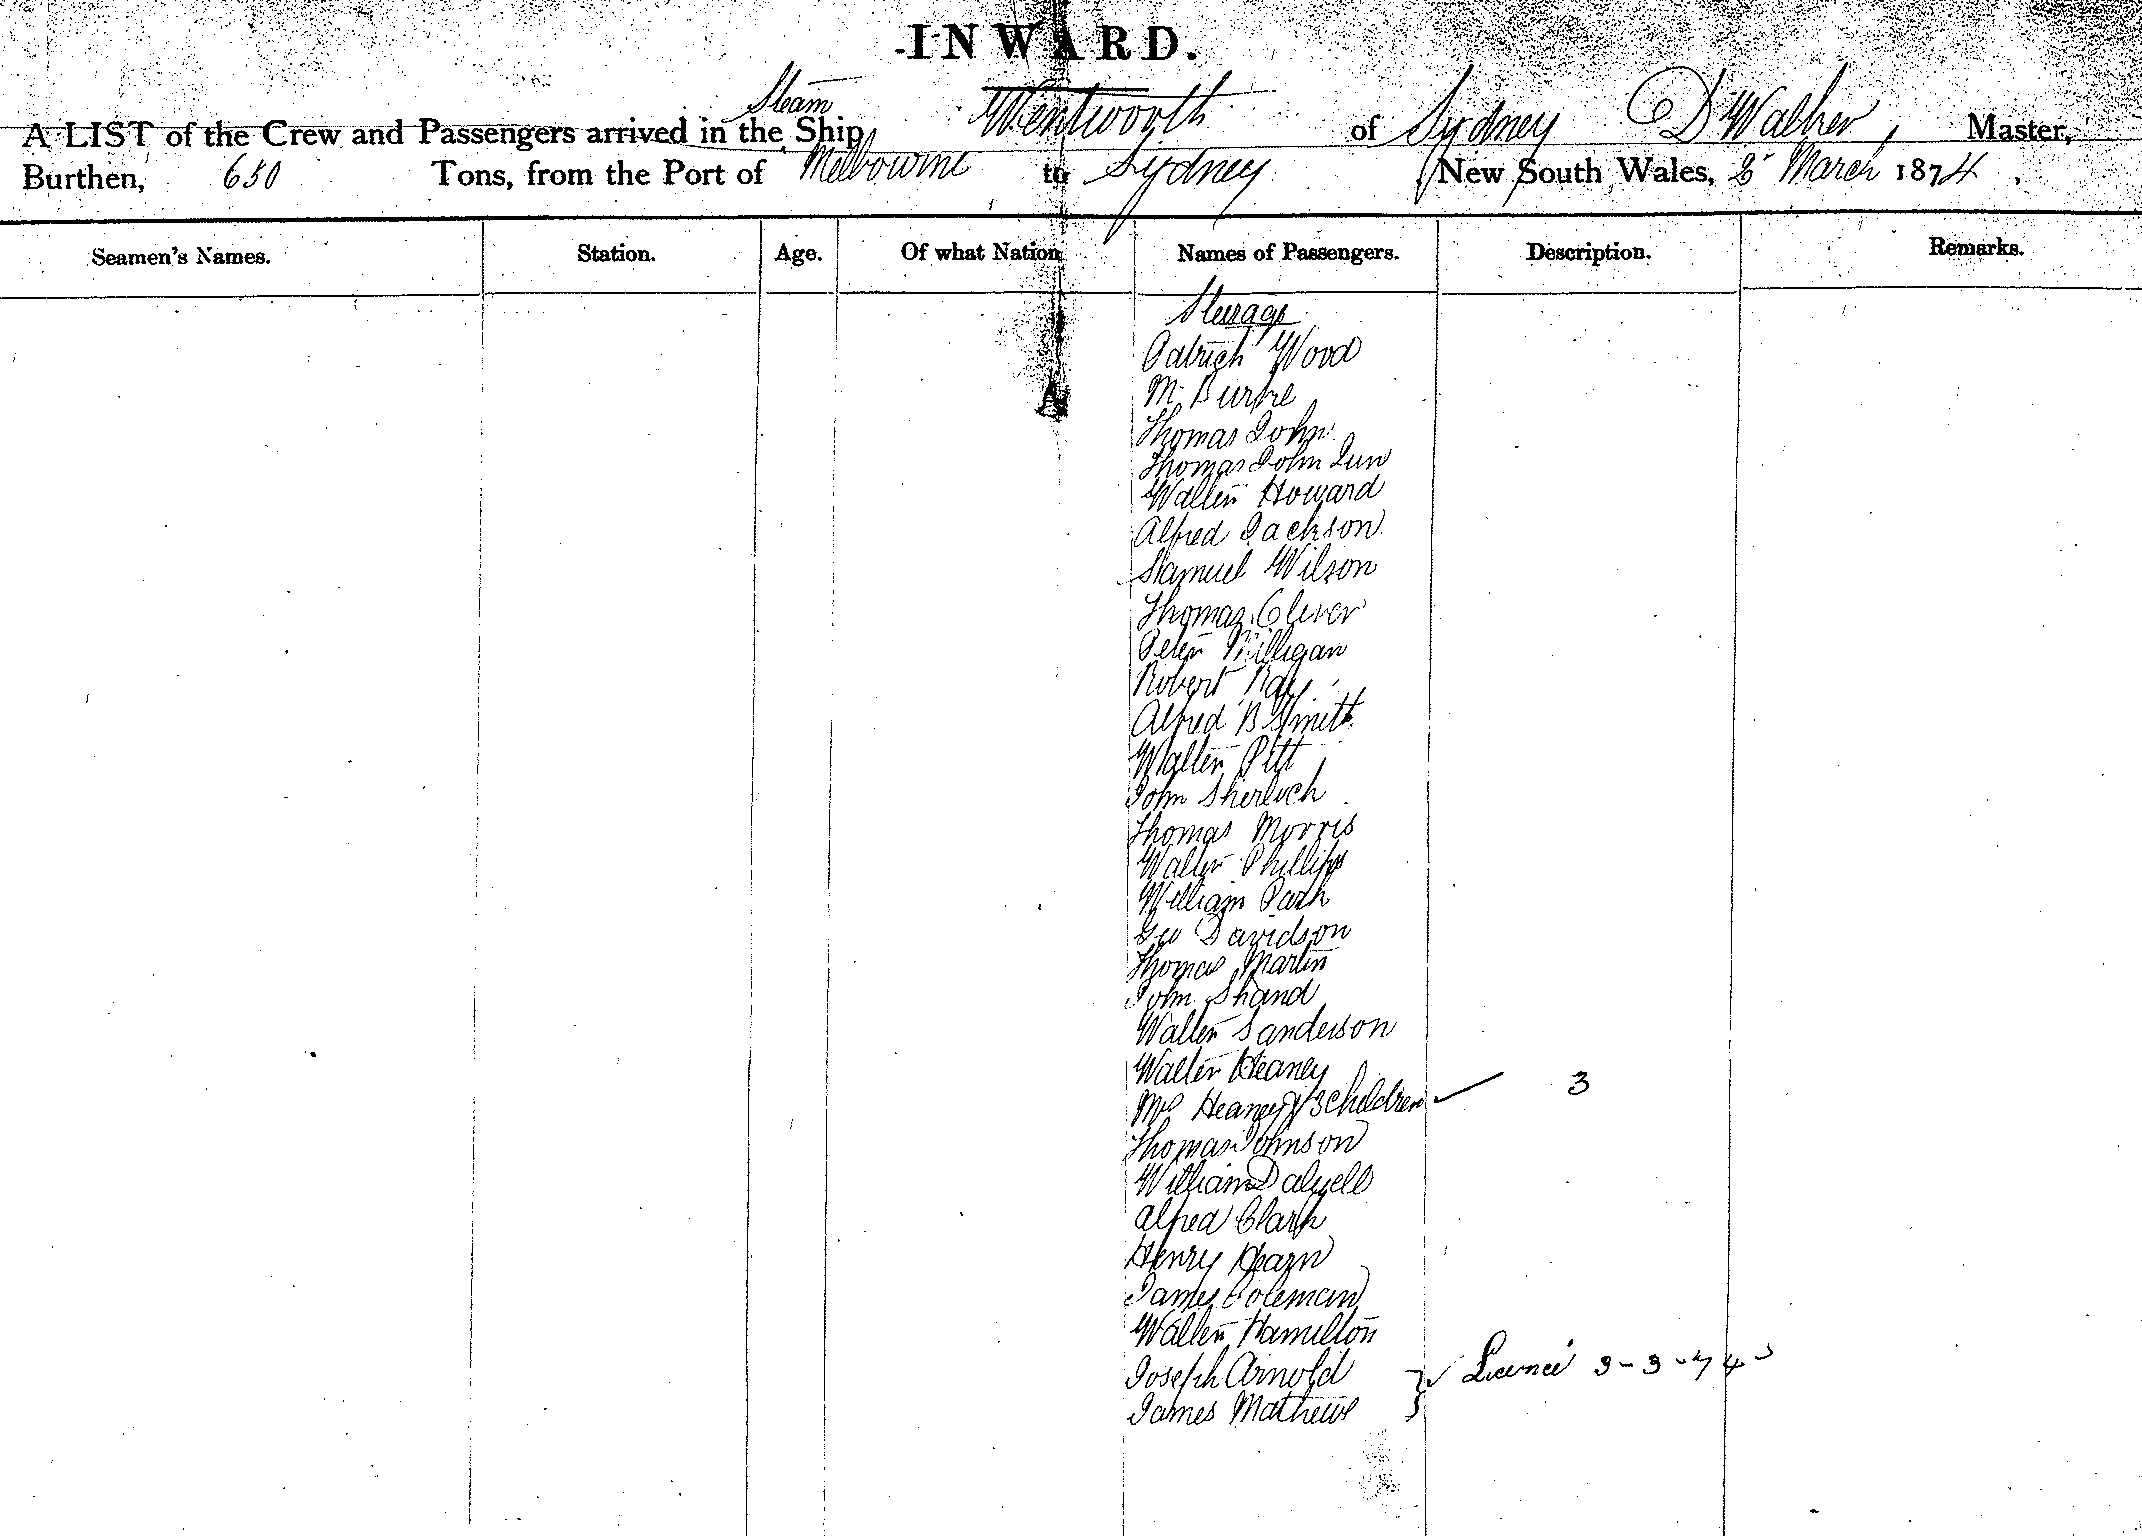 INWARD.
A LIST of the Crew and Passengers arrived in the Steam Ship Wentworth of Sydney D Walker, Master,
Burthen, 650 Tons, from the Port of Melbourne to Sydney New South Wales, 2 March 1874
Seamen's Names. Station. Age. Of what Nation Names of Passengers. Description. Remarks.
Steerage
Patrick Wood
M. Burke
Thomas John
Thomas John Jun
Walter Howard
Alfred Jackson
Samuel Wilson
Thomas Oliver
Peter Milligan
Robert Ray
Alfred B Smith
Walter Pitt
John Sherlock
Thomas Morris
Walter Phillips
William Park
Geo Davidson
Thomas Martin
John Shand
Walter Sanderson
Walter Heaney
Mrs Heaney & 3 children 3
Thomas Johnson
William Dalyell
Alfred Clark
Henry Hearn
James Coleman
Walter Hamilton
Joseph Arnold
James Mathews
3-3-74